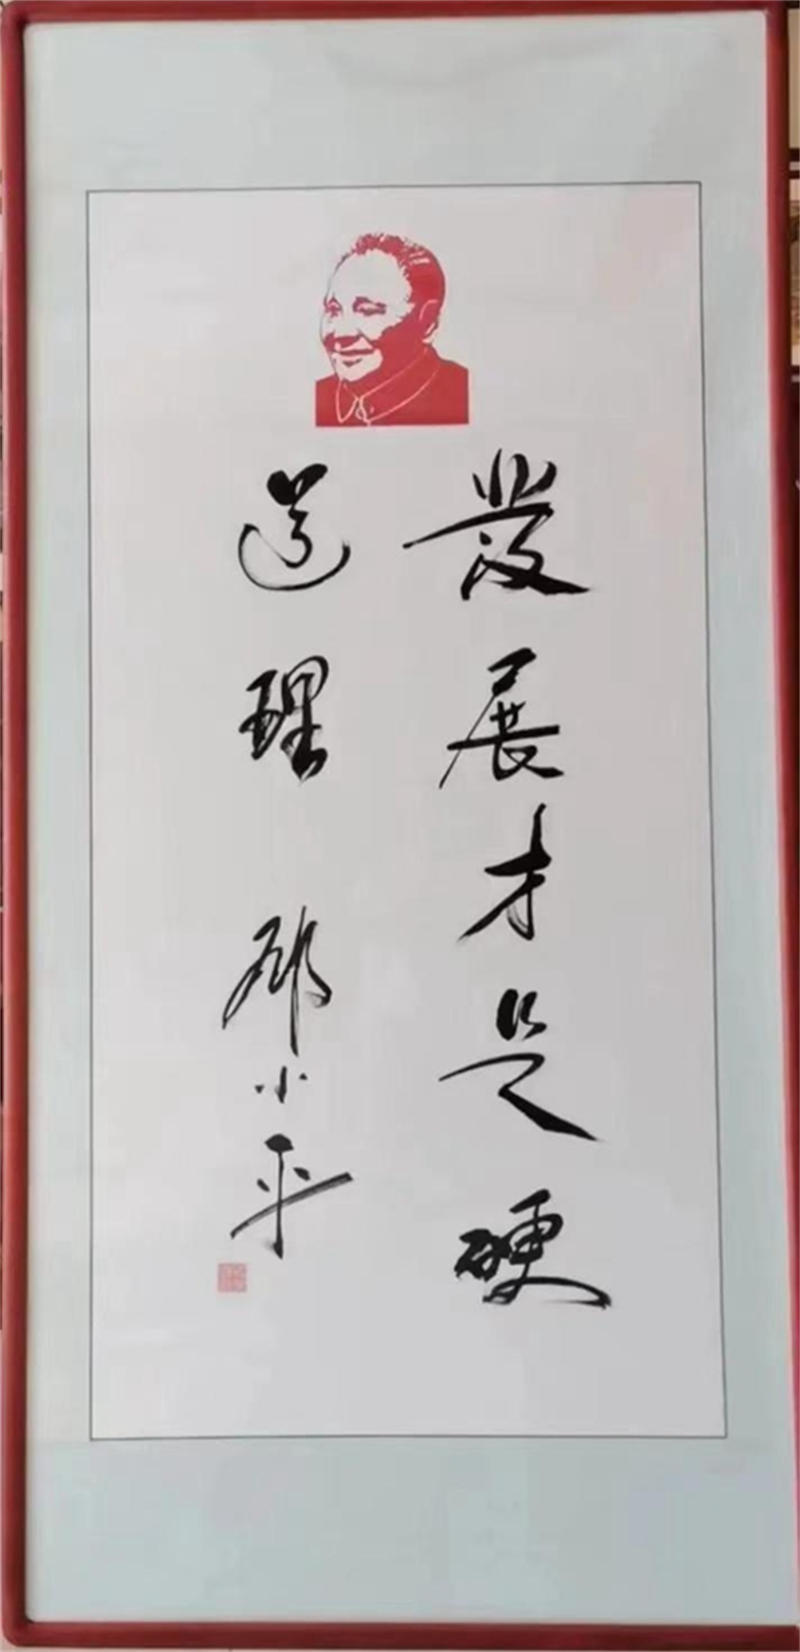 發展才是硬
道理 邓小平